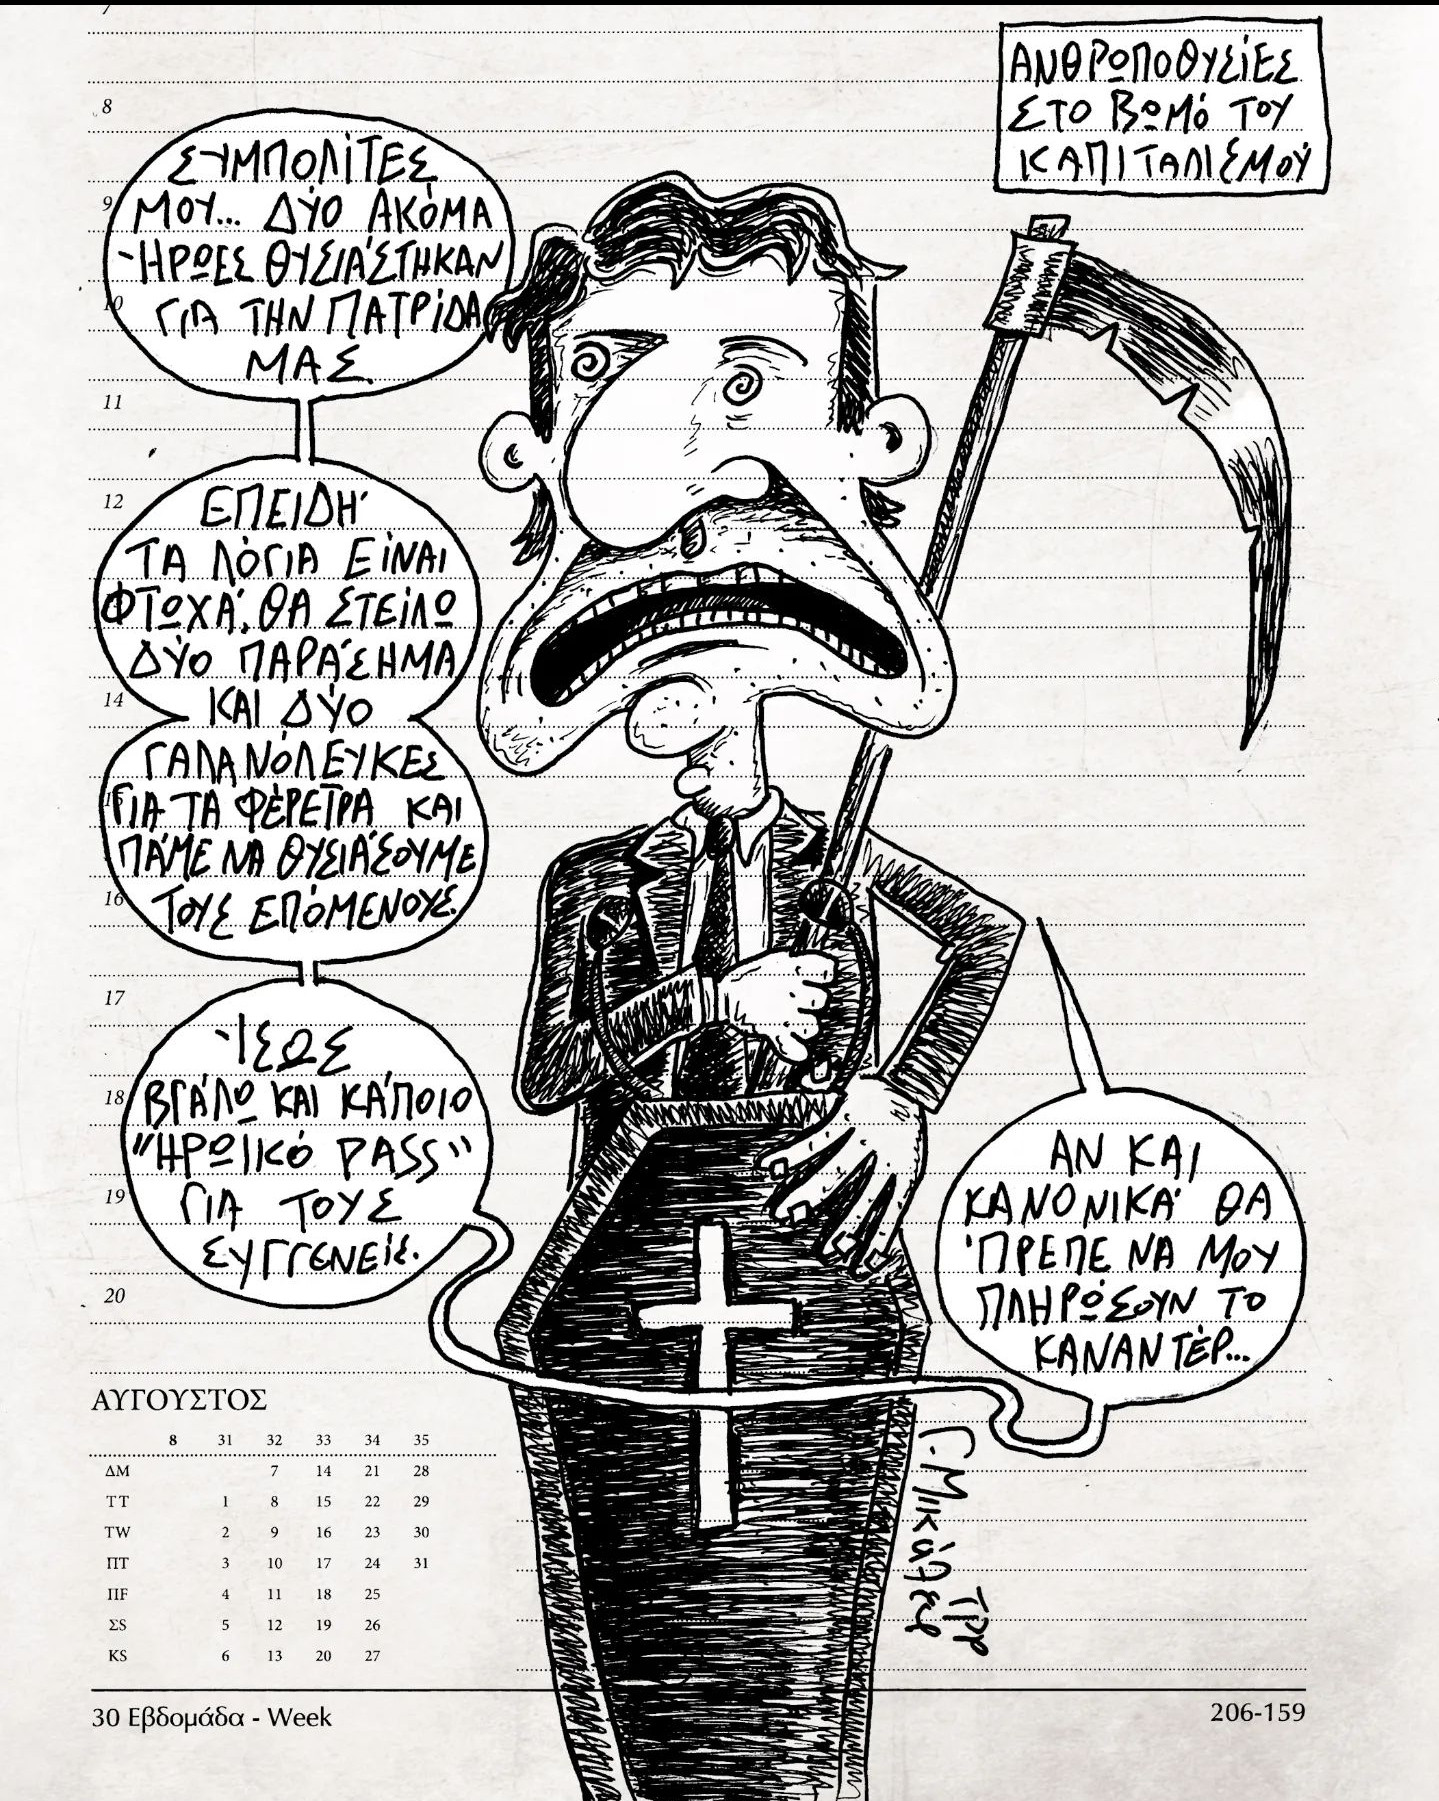 ΑΝΘΡΩΠΟΘΥΣΙΕΣ
ΣΤΟ ΒΩΜΟ ΤΟΥ
ΚΑΠΙΤΑΛΙΣΜΟΎ
ΣΥΜΠΟΛΙΤΕΣ
ΜΟΥ... ΔΥΟ ΑΚΟΜΑ
ΉΡΩΕΣ ΘΥΣΙΆΣΤΗΚΑΝ
ΓΙΑ ΤΗΝ ΠΑΤΡΙΔΑ
ΜΑΣ.
ΕΠΕΙΔΉ
ΤΑ ΛΌΓΙΑ ΕΊΝΑΙ
ΦΤΩΧΆ, ΘΑ ΣΤΕΊΛΩ
ΔΎΟ ΠΑΡΆΣΗΜΑ
ΚΑΙ ΔΎΟ
ΓΑΛΑΝΌΛΕΥΚΕΣ
ΓΙΑ ΤΑ ΦΈΡΕΤΡΑ ΚΑΙ
ΠΆΜΕ ΝΑ ΘΥΣΙΆΣΟΥΜΕ
ΤΟΥΣ ΕΠΌΜΕΝΟΥΣ.
ΊΣΩΣ
ΒΓΆΛΩ ΚΑΙ ΚΆΠΟΙΟ
"ΗΡΩΙΚΌ PASS"
ΓΙΑ ΤΟΥΣ
ΣΥΓΓΕΝΕΊΣ.
ΑΝ ΚΑΙ
ΚΑΝΟΝΙΚΆ ΘΑ
ΈΠΡΕΠΕ ΝΑ ΜΟΥ
ΠΛΗΡΏΣΟΥΝ ΤΟ
ΚΑΝΑΝΤΈΡ...
7
8
9
10
11
12
14
15
16
17
18
19
20
ΑΥΓΟΥΣΤΟΣ
8 31 32 33 34 35
ΔΜ 7 14 21 28
ΤΤ 1 8 15 22 29
TW 2 9 16 23 30
ΠΤ 3 10 17 24 31
ΠF 4 11 18 25
ΣS 5 12 19 26
KS 6 13 20 27
30 Εβδομάδα - Week
206-159